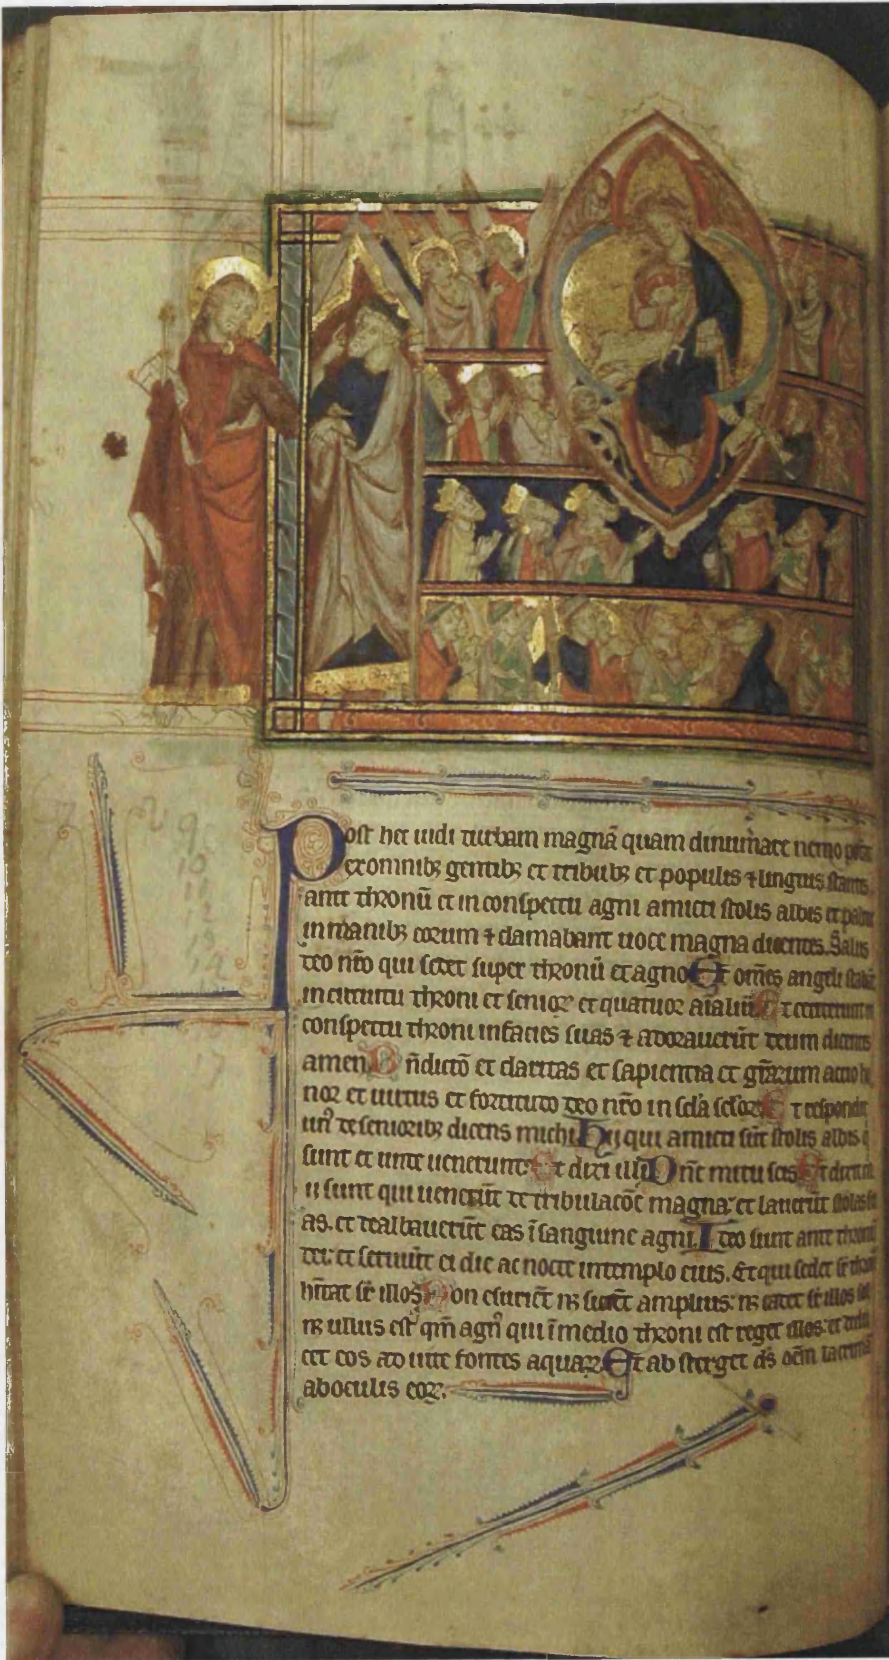 9
10
11
12
13
14
17
Post hec uidi turbam magnā quam dinumare nemo
ex omnibꝫ gentibꝫ et tribubꝫ et populis ⁊ linguis stantes
ante thronū et in conspectu agni amicti stolis albis et palme
in manibꝫ eorum ⁊ clamabant uoce magna dicentes. Salus
deo nr̄o qui sedet super thronū et agno Et omēs angeli stabāt
in circuitu throni et senioꝝ et quatuor aīaliū Et ceciderunt in
conspectu throni in facies suas ⁊ adorauerūt deum dicentes
amen Bn̄dictō et claritas et sapientia et gr̄arum actio ho
nor et uirtus et fortitudo deo nr̄o in scl̄a scl̄oꝝ Et respondit
unꝰ de senioribꝫ dicens michi Hij qui amicti sūt stolis albis q̄
sunt et unde uenerunt. Et dixi illi Dn̄e mi tu scis Et dixit m
ii sunt qui uenerūt de tribulacōe magna. et lauerūt stolas su
as. et dealbauerūt eas ī sanguine agni. Ideo sunt ante thronū
dei. et seruiūt ei die ac nocte in templo eius. Et qui sedet sr̄ thronū
hītat sr̄ illos Non esuriēt nꝫ sitiēt amplius. nꝫ cadet sr̄ illos sol
nꝫ ullus estꝰ qm̄ agnꝰ qui ī medio throni est reget illos. et dedu
cet eos ad uite fontes aquaꝝ Et absterget dꝰs oēm lacrimā
ab oculis eoꝝ.